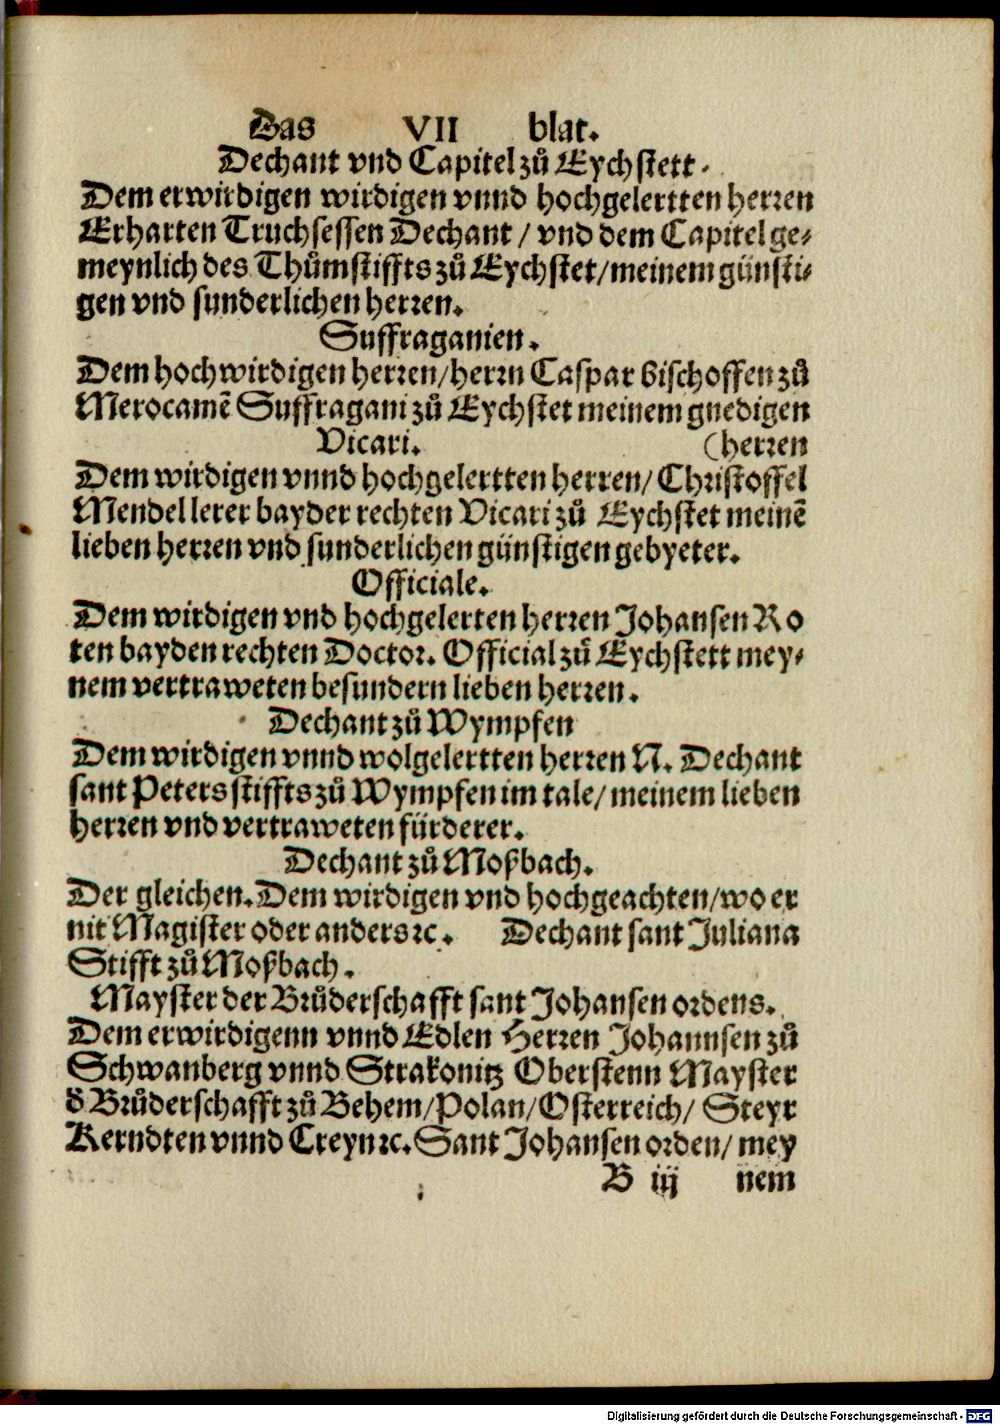 Das VII blat.
Dechant vnd Capitel zů Eychstett.
Dem erwirdigen wirdigen vnnd hochgelertten herren
Erharten Truchsessen Dechant / vnd dem Capitel ge⸗
meynlich des Thůmstiffts zů Eychstet/meinem günsti⸗
gen vnd sunderlichen herren.
Suffraganien.
Dem hochwirdigen herren/herrn Caspar bischoffen zů
Merocamē Suffragani zů Eychstet meinem gnedigen
Vicari. (herren
Dem wirdigen vnnd hochgelertten herren/ Christoffel
Mendel lerer bayder rechten Vicari zů Eychstet meinē
lieben herren vnd sunderlichen günstigen gebyeter.
Officiale.
Dem wirdigen vnd hochgelerten herren Johansen Ro
ten bayden rechten Doctor. Official zů Eychstett mey⸗
nem vertraweten besundern lieben herren.
Dechant zů Wympfen
Dem wirdigen vnnd wolgelertten herren N. Dechant
sant Peters stiffts zů Wympfen im tale/ meinem lieben
herren vnd vertraweten fürderer.
Dechant zů Moßbach.
Der gleichen. Dem wirdigen vnd hochgeachten/wo er
nit Magister oder anders ꝛc. Dechant sant Juliana
Stifft zů Moßbach.
Mayster der Brůderschafft sant Johansen ordens.
Dem erwirdigenn vnnd Edlen Herren Johannsen zů
Schwanberg vnnd Strakonitz Oberstenn Mayster
d̕ Brůderschafft zů Behem/Polan/Osterreich/ Steyr
Kerndten vnnd Creyn ꝛc. Sant Johansen orden/ mey
B iij nem
Digitalisierung gefördert durch die Deutsche Forschungsgemeinschaft - DFG